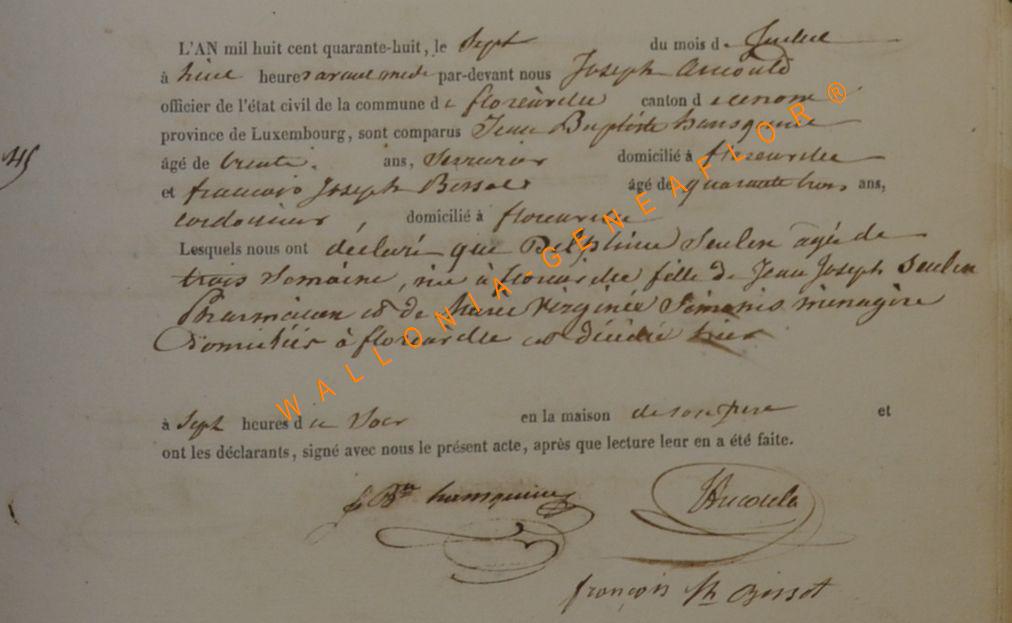 L'AN mil huit cent quarante-huit, le Sept du mois d
à heures avant midi par-devant nous Joseph Arnould
officier de l'état civil de la commune de florenville canton d
province de Luxembourg, sont comparus Jean Baptiste hansquine
45
âgé de trente ans, Serrurier domicilié à florenville
et francois Joseph Bissot âgé de quarante trois ans,
cordonnier, domicilié à florenville
Lesquels nous ont déclaré que Delphine Seulen agée de
trois Semaine, née à florenville fille de Jean Joseph Seulen
Pharmacien et de Marie Virginie Simonis ménagère
Domiciliés à florenville est décédée hier
à Sept heures du Soir en la maison de son père et
ont les déclarants, signé avec nous le présent acte, après que lecture leur en a été faite.
hansquine
françois Bissot
WALLONIA-GENEAFLOR®